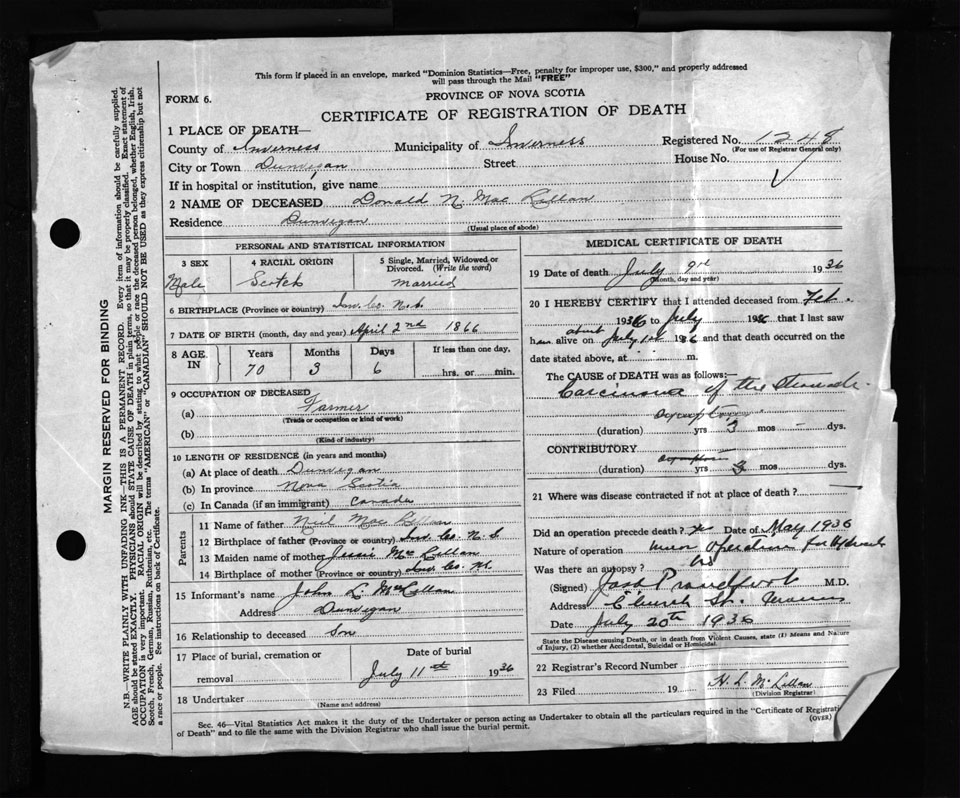 This form if placed in an envelope, marked "Dominion Statistics—Free, penalty for improper use, $300," and properly addressed
will pass through the Mail "FREE"
FORM 6.
PROVINCE OF NOVA SCOTIA
CERTIFICATE OF REGISTRATION OF DEATH
1 PLACE OF DEATH—
County of Inverness Municipality of Inverness Registered No. 1248
(For use of Registrar General only)
City or Town Dunvegan Street House No.
If in hospital or institution, give name
2 NAME OF DECEASED Donald N. Mac Lellan
Residence Dunvegan
(Usual place of abode)
PERSONAL AND STATISTICAL INFORMATION
3 SEX 4 RACIAL ORIGIN 5 Single, Married, Widowed or
Divorced. (Write the word)
Male Scotch Married
6 BIRTHPLACE (Province or country) Inv. Co. N.S.
7 DATE OF BIRTH (month, day and year) April 2nd 1866
8 AGE IN Years Months Days If less than one day,
70 3 6 hrs. or min.
9 OCCUPATION OF DECEASED
(a) Farmer
(Trade or occupation or kind of work)
(b)
(Kind of industry)
10 LENGTH OF RESIDENCE (in years and months)
(a) At place of death Dunvegan
(b) In province Nova Scotia
(c) In Canada (if an immigrant) Canada
Parents
11 Name of father Neil Mac Lellan
12 Birthplace of father (Province or country) Inv. Co. N. S
13 Maiden name of mother Jessie McLellan
14 Birthplace of mother (Province or country) Inv. Co. N.S.
15 Informant's name John L. McLellan
Address Dunvegan
16 Relationship to deceased Son
17 Place of burial, cremation or Date of burial
removal July 11th 1936
18 Undertaker
(Name and address)
MEDICAL CERTIFICATE OF DEATH
19 Date of death July 9th 1936
(Month, day and year)
20 I HEREBY CERTIFY that I attended deceased from Feb.
1936 to July 1936 that I last saw
him alive on about July 1st 1936 and that death occurred on
date stated above, at m.
The CAUSE of DEATH was as follows:—
Carcinoma of the Stomach
(duration) yrs 3 mos – dys.
CONTRIBUTORY
(duration) yrs 3 mos dys.
21 Where was disease contracted if not at place of death?
Did an operation precede death? Date of May 1936
Nature of operation minor operation for
Was there an autopsy? No
(Signed) M.D.
Address Church St.
Date July 20th 1936
State the Disease causing Death, or in death from Violent Causes, state (1) Means and Nature
of Injury, (2) whether Accidental, Suicidal or Homicidal.
22 Registrar's Record Number
23 Filed 19 H. L. McLellan
(Division Registrar)
Sec. 46—Vital Statistics Act makes it the duty of the Undertaker or person acting as Undertaker to obtain all the particulars required in the "Certificate of Registrati
of Death" and to file the same with the Division Registrar who shall issue the burial permit.
(OVER)
MARGIN RESERVED FOR BINDING
N.B.—WRITE PLAINLY WITH UNFADING INK—THIS IS A PERMANENT RECORD. Every item of information should be carefully supplied.
AGE should be stated EXACTLY. PHYSICIANS should STATE CAUSE OF DEATH in plain terms, so that it may be properly classified. Exact statement of
OCCUPATION is very important. RACIAL ORIGIN will be described by stating to what people or race the deceased person belonged, whether English, Irish,
Scotch, French, German, Russian, Ruthenian, etc. The terms "AMERICAN" or "CANADIAN" SHOULD NOT BE USED as they express citizenship but not
a race or people. See instructions on back of Certificate.